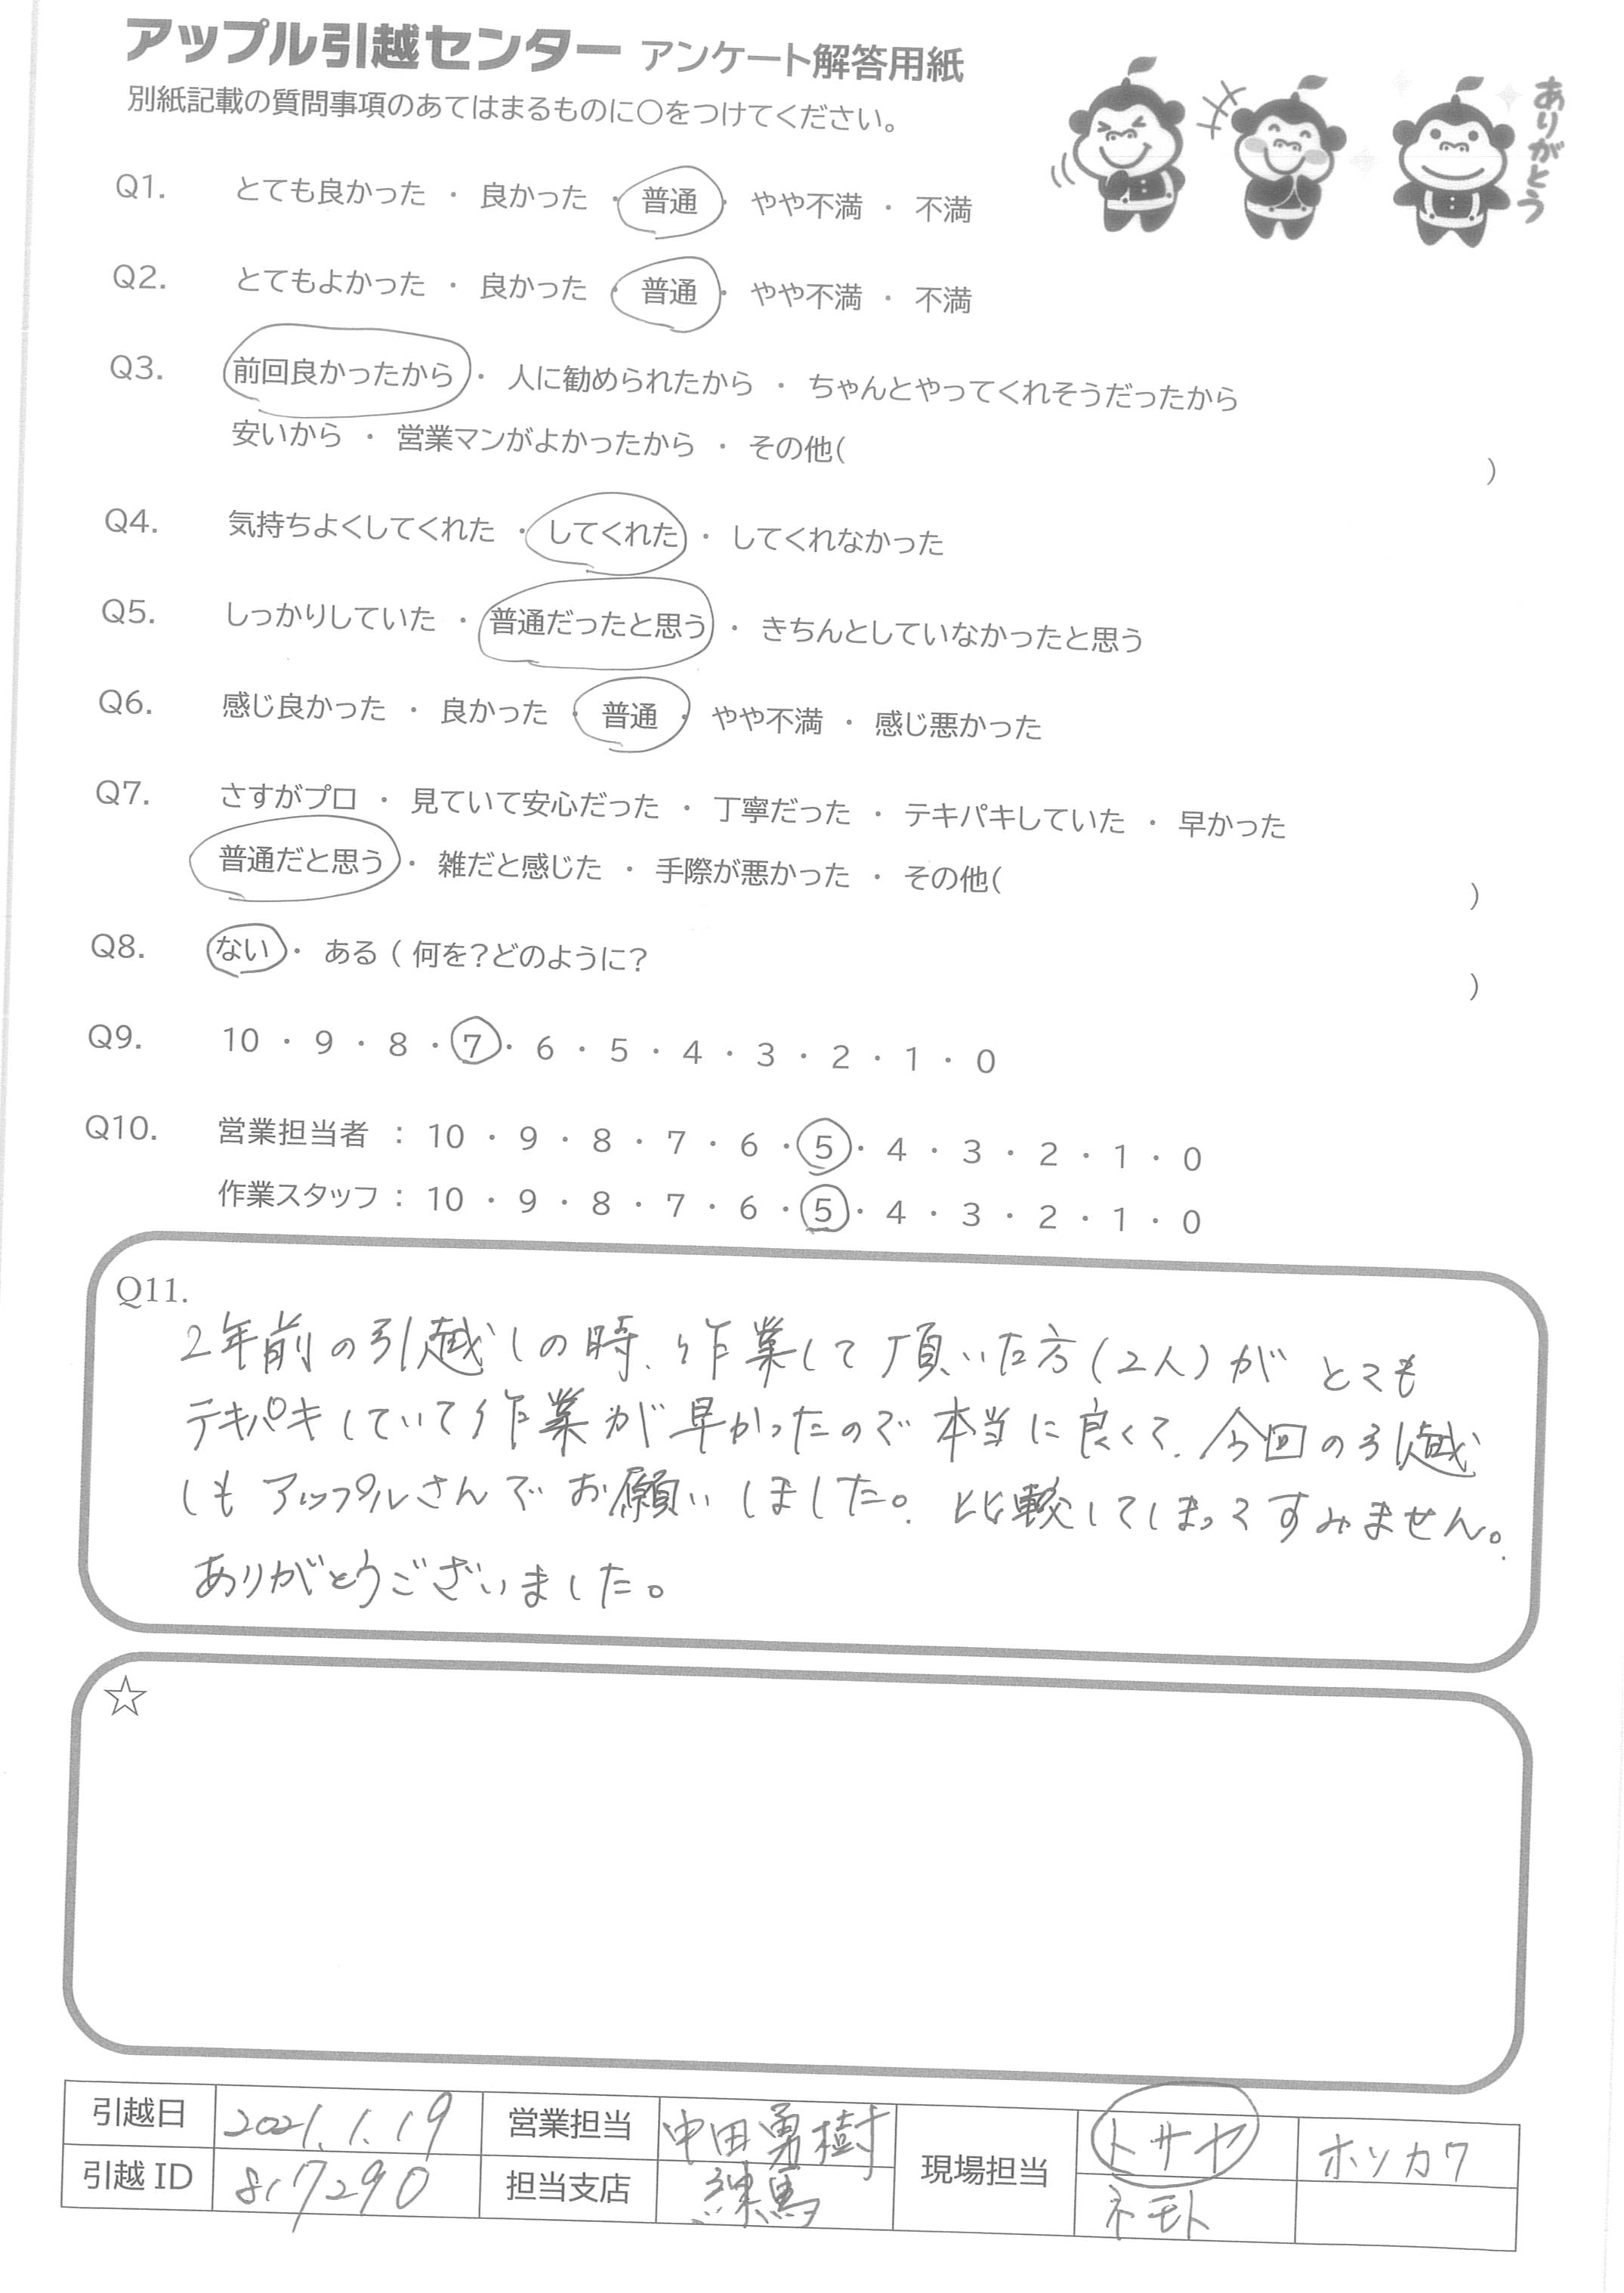 アップル引越センター アンケート解答用紙
別紙記載の質問事項のあてはまるものに○をつけてください。
ありがとう
Q1. とても良かった ・ 良かった ・ 普通 ・ やや不満 ・ 不満
Q2. とてもよかった ・ 良かった ・ 普通 ・ やや不満 ・ 不満
Q3. 前回良かったから ・ 人に勧められたから ・ ちゃんとやってくれそうだったから
安いから ・ 営業マンがよかったから ・ その他( )
Q4. 気持ちよくしてくれた ・ してくれた ・ してくれなかった
Q5. しっかりしていた ・ 普通だったと思う ・ きちんとしていなかったと思う
Q6. 感じ良かった ・ 良かった ・ 普通 ・ やや不満 ・ 感じ悪かった
Q7. さすがプロ ・ 見ていて安心だった ・ 丁寧だった ・ テキパキしていた ・ 早かった
普通だと思う ・ 雑だと感じた ・ 手際が悪かった ・ その他( )
Q8. ない ・ ある ( 何を?どのように? )
Q9. 10 ・ 9 ・ 8 ・ 7 ・ 6 ・ 5 ・ 4 ・ 3 ・ 2 ・ 1 ・ 0
Q10. 営業担当者 : 10 ・ 9 ・ 8 ・ 7 ・ 6 ・ 5 ・ 4 ・ 3 ・ 2 ・ 1 ・ 0
作業スタッフ : 10 ・ 9 ・ 8 ・ 7 ・ 6 ・ 5 ・ 4 ・ 3 ・ 2 ・ 1 ・ 0
Q11.
2年前の引越しの時、作業して頂いた方(2人)がとても
テキパキしていて作業が早かったので本当に良くて、今回の引越
しもアップルさんでお願いしました。比較してしまってすみません。
ありがとうございました。
☆
引越日 2021.1.19 営業担当 中田勇樹 現場担当 トサヤ ホソカワ
引越ID 817290 担当支店 練馬 ネモト